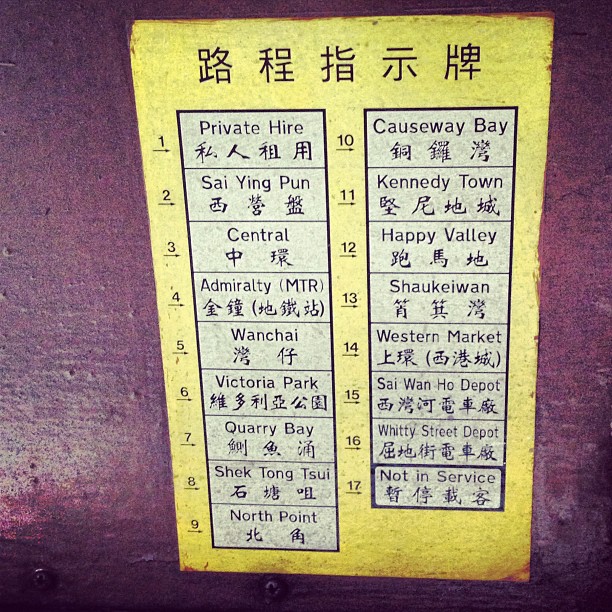 路程指示牌
1
Private Hire
私人租用
2
Sai Ying Pun
西營盤
3
Central
中環
4
Admiralty (MTR)
金鐘(地鐵站)
5
Wanchai
灣仔
6
Victoria Park
維多利亞公園
7
Quarry Bay
鰂魚涌
8
Shek Tong Tsui
石塘咀
9
North Point
北角
10
Causeway Bay
銅鑼灣
11
Kennedy Town
堅尼地城
12
Happy Valley
跑馬地
13
Shaukeiwan
筲箕灣
14
Western Market
上環(西港城)
15
Sai Wan Ho Depot
西灣河電車廠
16
Whitty Street Depot
屈地街電車廠
17
Not in Service
暫停載客